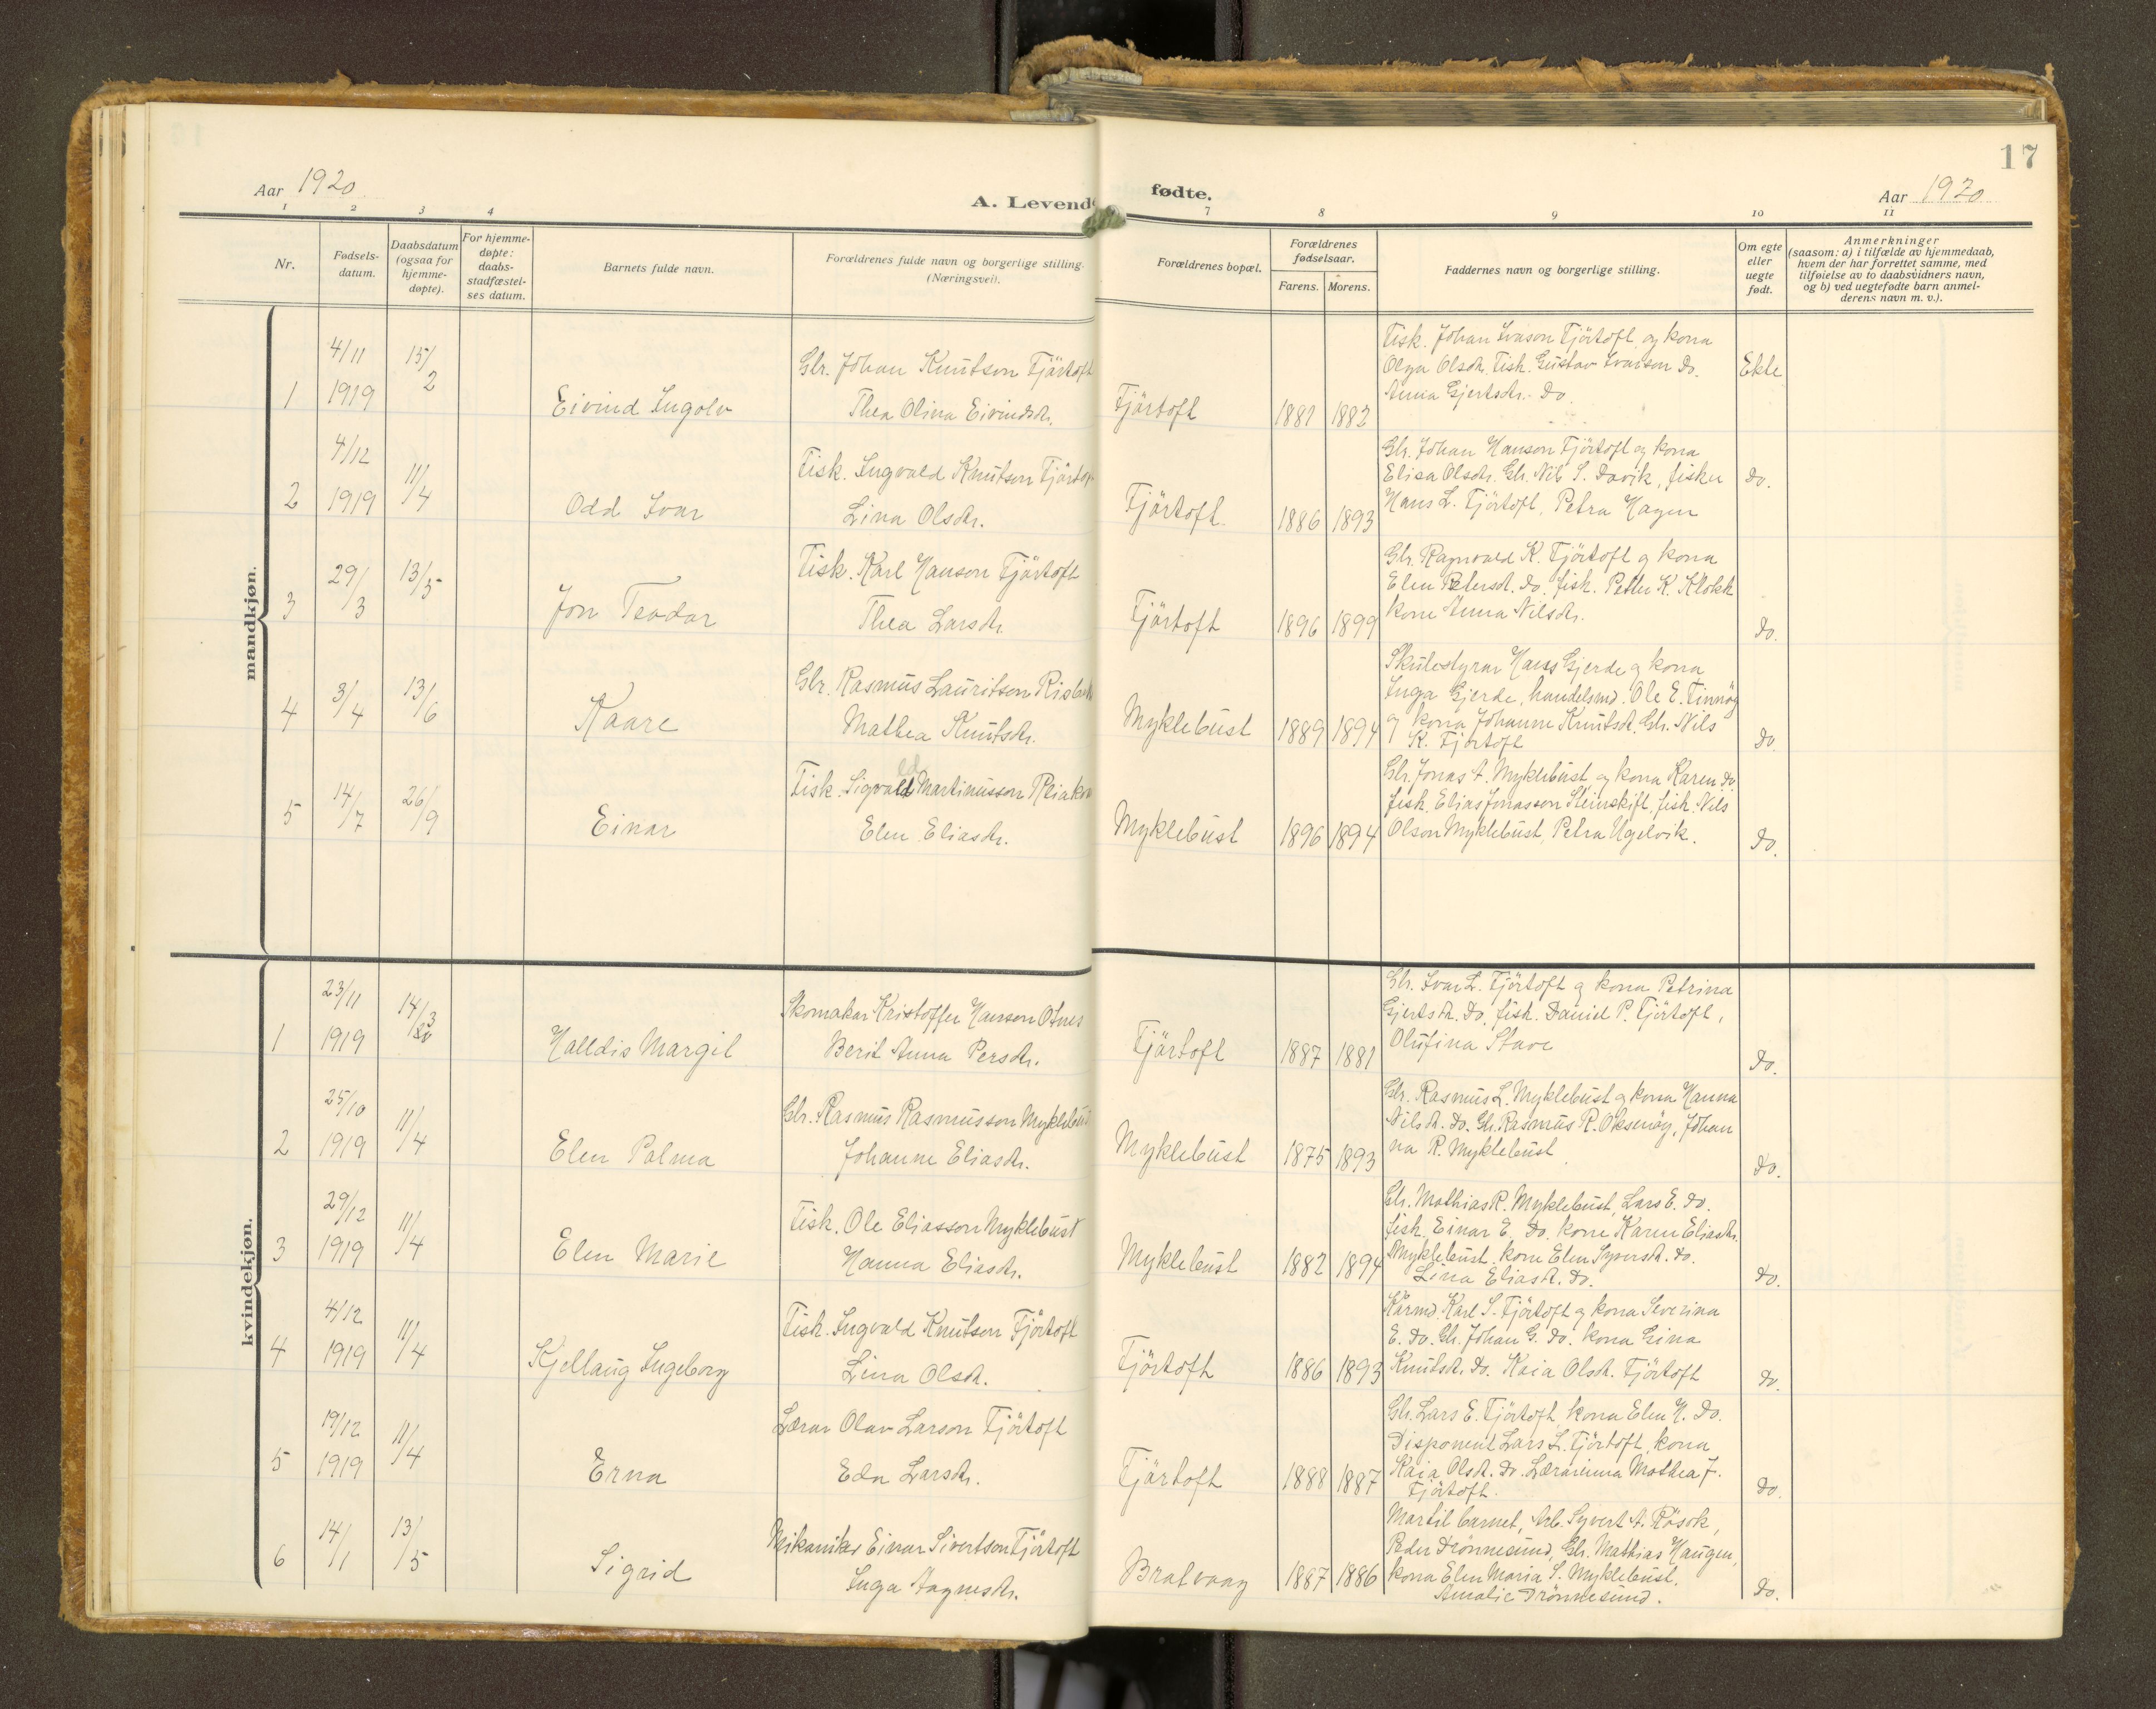 17
Aar 1920
A. Levende
fødte.
Aar 1920
1 2 3 4 7 8 9 10 11
Nr.
Fødsels-
datum.
Daabsdatum
(ogsaa for
hjemme-
døpte).
For hjemme-
døpte:
daabs-
stadfæstel-
ses datum.
Barnets fulde navn.
Forældrenes fulde navn og borgerlige stilling.
(Næringsvei).
Forældrenes bopæl.
Forældrenes
fødselsaar.
Farens. Morens.
Faddernes navn og borgerlige stilling.
Om egte
eller
uegte
født.
Anmerkninger
(saasom: a) i tilfælde av hjemmedaab,
hvem der har forrettet samme, med
tilføielse av to daabsvidners navn,
og b) ved uegtefødte barn anmel-
derens navn m. v.).
mandkjøn.
1
4/11
1919
15/2
Eivind Ingolv
Gbr. Johan Knutson Fjörtoft
Thea Olina Eivindsdr.
Fjörtoft
1881 1882
Fisk. Johan Ivarson Fjörtoft og kona
Olga Olsdr. Fisk. Gustav Ivarson Do.
Anna Gjertsdr. Do.
Ekte
2
4/12
1919
11/4
Odd Ivar
Fisk. Ingvald Knutson Fjörtof
Lina Olsdr.
Fjörtoft
1886 1893
Gbr. Johan Hanson Fjörtoft og kona
Elisa Olsdr. Gbr. Nils S. Davik, fisker
Hans L. Fjörtoft, Petra Hagen
do.
3
29/3
13/5
Jon Teodor
Fisk. Karl Hanson Fjörtoft
Thea Larsdr.
Fjörtoft
1896 1899
Gbr. Ragnvald K. Fjörtoft og kona
Elen Petersd. do. fisk. Petter K. Klokk
kone Anna Nilsdr.
do.
4
3/4
13/6
Kaare
Gbr. Rasmus Lauritson Risb
Mathea Knutsdr.
Myklebust
1889 1894
Skulestyrar Hans Gjerde og kona
Inga Gjerde, handelsmd. Ole E. Finnöy
og kona Johanne Knutsd. Gbr. Nils
K. Fjörtoft
do
5
14/7
26/9
Einar
Fisk. Sigvald Martinusson Rliak
Elen Eliasdr.
Myklebust
1896 1894
Gbr. Jonas A. Myklebust og kona Karen do.
fisk. Elias Jonasson Steinskift, fisk. Nils
Olson Myklebust, Petra Ugelvik.
do.
kvindekjøn.
1
23/11
1919
14/3
Halldis Margit
Skomakar Kristoffer Hanson Otnes
Berit Anna Persdr.
Fjörtoft
1887 1881
Gbr. Ivar L. Fjörtoft og kona Petrina
Gjertsdr. do. fisk. Daniel P. Fjörtoft,
Olufina Stave
do.
2
25/10
1919
11/4
Elen Palma
Gbr. Rasmus Rasmusson Myklebust
Johanne Eliasdr.
Myklebust
1875 1893
Gbr. Rasmus L. Myklebust og kona Hanna
Nilsdr. do. Gbr. Rasmus R. Oksenöy, Johan
na R. Myklebust
do.
3
29/12
1919
11/4
Elen Marie
Fisk. Ole Eliasson Myklebust
Hanna Eliasdr.
Myklebust
1882 1894
Gbr. Mathias R. Myklebust, Lars E. do.
fisk. Einar E. do. kone Karen Eliasdr.
Myklebust. kone Elen Syversd. do.
Lina Eliasdr. do.
do.
4
4/12
1919
11/4
Kjellaug Ingeborg
Fisk. Ingvald Knutson Fjörtoft
Lina Olsdr.
Fjörtoft
1886 1893
Kårmd. Karl S. Fjörtoft og kona Severina
E. do. Gbr. Johan G. do. kona Gina
Knutsd. do. Kaia Olsdr. Fjörtoft
do.
5
19/12
1919
11/4
Erna
Lærar Olav Larson Fjörtoft
Eda Larsdr.
Fjörtoft
1888 1887
Gbr. Lars E. Fjörtoft, kona Elen H. Do.
Disponent Lars L. Fjörtoft, kona
Kaia Olsdr. do. Lærarinna Mathea J.
Fjörtoft.
do.
6
14/1
13/5
Sigrid
Mikaniker Einar Sivertson Fjörtoft
Inga Aagnesdr.
Bratvaag
1887 1886
Martil barnet, Arb. Syvert A. Rösok,
Peder Drönnesund, Gbr. Mathias Haugen,
kona Elen Maria S. Myklebust,
Amalie Drönnesund.
do.